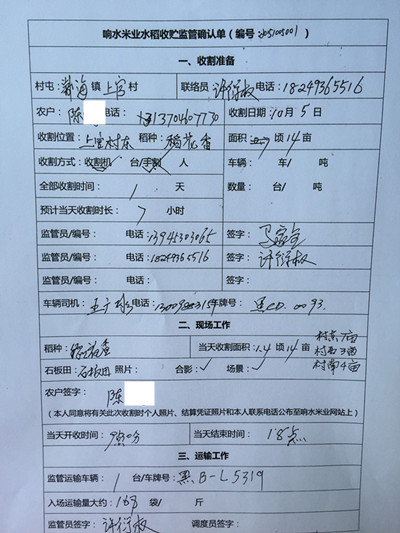 响水米业水稻收贮监管确认单(编号:
一、收割准备
村屯: 镇 上官 村 联络员 许衍权 电话: 18249365516
农户: 陈 电话: 13704607730 收割日期: 10月5日
收割位置: 上官村东 稻种: 稻花香 面积: 顷14亩
收割方式: 收割机 台/手割 人 车辆: 车/ 吨
全部收割时间: 1 天 数量: 台/ 吨
预计当天收割时长: 7 小时
监管员/编号: 电话: 13945303065 签字:
监管员/编号: 电话: 18249365516 签字: 许衍权
监管员/编号: 电话: 签字:
车辆司机: 电话: 车牌号: 黑CD.0093.
二、现场工作
稻种: 稻花香 当天收割面积: 14亩 村东7亩
村西3亩
石板田: 石板田 照片: 合影: ✓ 场景: ✓ 村南4亩
农户签字: 陈
(本人同意将有关此次收割时个人照片、结算凭证照片和本人联系电话公布至响水米业网站上)
当天开收时间: 当天结束时间: 18点
三、运输工作
监管运输车辆: 1 台/车牌号: 黑B-L5319
入场运输量大约: 168 袋/ 斤
监管员签字: 许衍权 调度员签字: